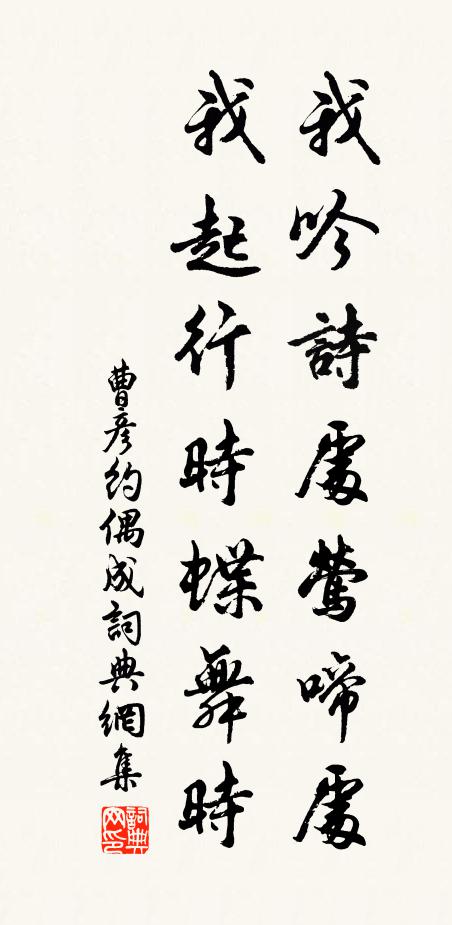 我吟詩處鶯啼處
我起行時蝶舞時
曹彥約偶成詞典網集
詞典網印